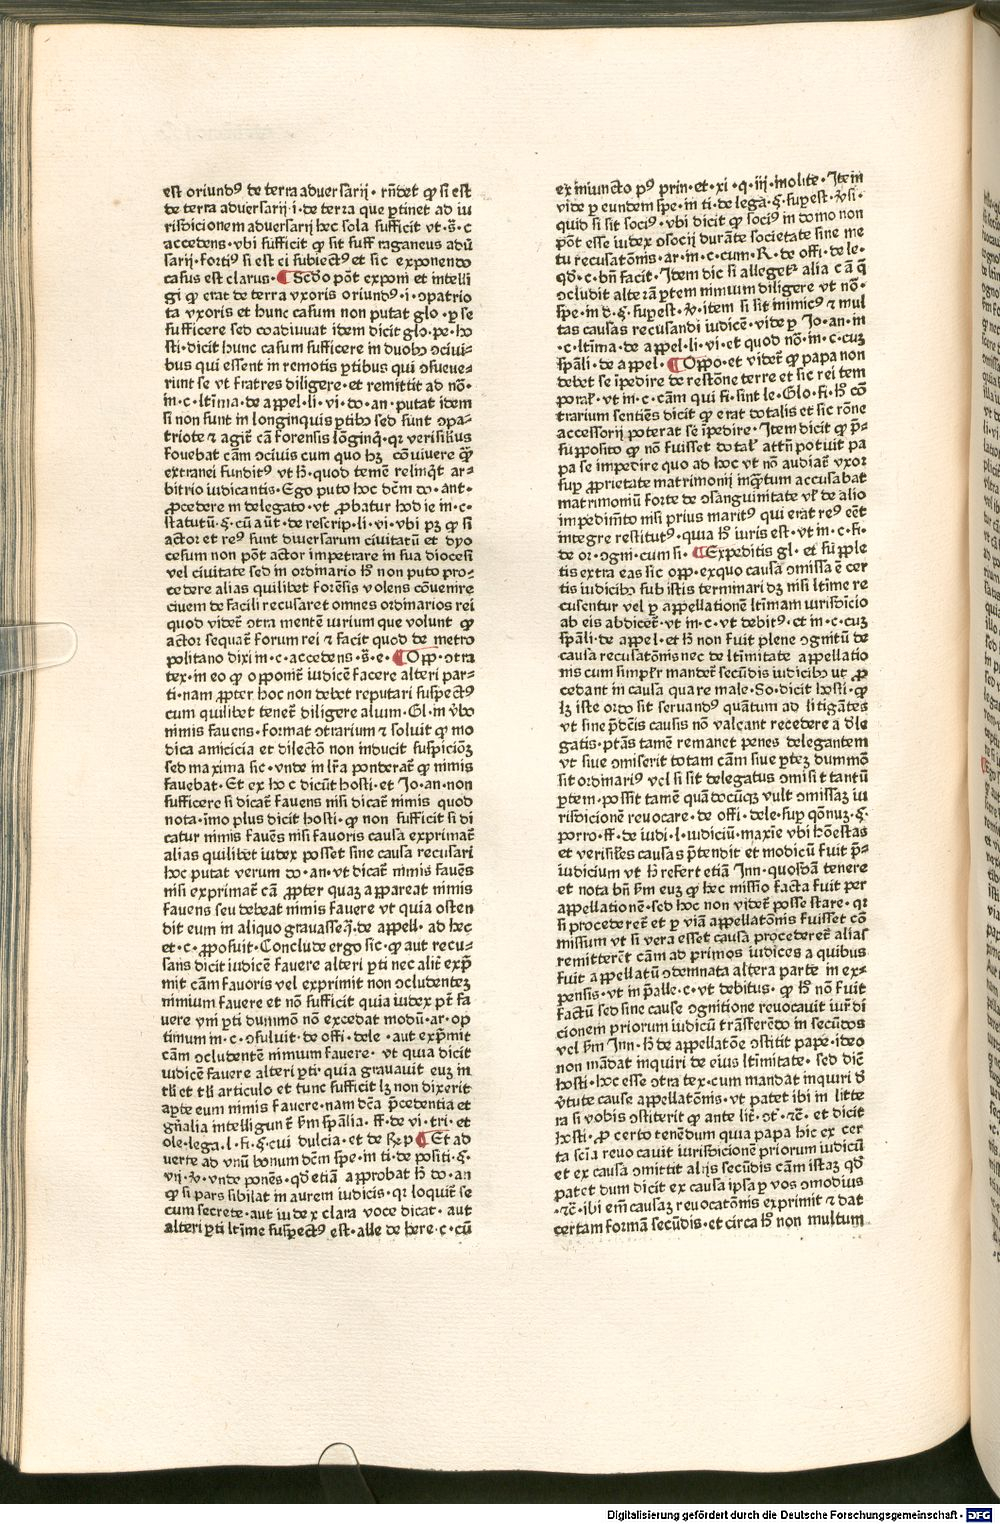 est oriundꝰ de terra aduersarij · rñdet ꝙ si est
de terra aduersarij·i·de terra que ꝑtinet ad iu
risdicionem aduersarij hec sola sufficit vt·s̄·c
accedens·vbi sufficit ꝙ sit suff raganeus adũ
sarij·fortiꝰ si est ei subiectꝰ et sic exponendo
casus est clarus· ¶ Scd̄o põt exponi et intelli
gi ꝙ erat de terra vxoris oriundꝰ·i·ↄpatrio
ta vxoris et hunc casum non putat glo·ꝑ se
sufficere sed coadiuuat idem dicit glo·pe·ho
sti·dicit hunc casum sufficere in duobꝫ ↄciui⸗
bus qui essent in remotis ꝑtibus qui ↄsueue⸗
runt se vt fratres diligere·et remittit ad nõ·
in·c·ltĩma·de appel·li·vi·do·an·putat idem
si non sunt in longinquis ꝑtibꝫ sed sunt ↄpa⸗
triote ⁊ agiẗ cã forensis lõginq̃·qꝛ verisilius
fouebat cãm ↄciuis cum quo hꝫ cõuiuere q̃ꝫ
extranei funditꝰ vt h̄·quod temẽ relinq̃t ar⸗
bitrio iudicantis·Ego puto hoc dẽm do·ant·
ꝓcedere in delegato·vt ꝓbatur hodie in·c·
statutũ·§·cũ aũt·de rescrip·li·vi·vbi pꝫ ꝙ si
actor et reꝰ sunt diuersarum ciuitatũ et dyo
cesum non põt actor impetrare in sua diocesi
vel ciuitate sed in ordinario h̄ non puto pro⸗
cedere alias quilibet forẽsis volens cõuenire
ciuem de facili recusaret omnes ordinarios rei
quod videẗ ↄtra mentẽ iurium que volunt ꝙ
actor sequaẗ forum rei ⁊ facit quod de metro
politano dixi in·c·accedens·s̄·e· ¶ Opp·ↄtra
tex·in eo ꝙ opponiẗ iudicẽ facere alteri par⸗
ti·nam ꝓpter hoc non debet reputari suspectꝰ
cum quilibet teneẗ diligere alium·Gl·in v̓bo
nimis fauens·format ↄtrarium ⁊ soluit ꝙ mo
dica amicicia et dilectõ non inducit suspicioꝫ
sed maxima sic·vnde in lr̃a ponderaẗ ꝙ nimis
fauebat·Et ex hoc dicũt hosti·et Jo·an·non
sufficere si dicaẗ fauens nisi dicaẗ nimis quod
nota·ĩmo plus dicit hosti·ꝙ non sufficit si di
catur nimis fauẽs nisi fauoris causa exprimaẗ
alias quilibet iudex posset sine causa recusari
hoc putat verum do·an·vt dicaẗ nimis fauẽs
nisi exprimaẗ cã ꝓpter quaꝫ appareat nimis
fauens seu debeat nimis fauere vt quia osten
dit eum in aliquo grauasse·de appell·ad hec
et·c·ꝓposuit·Conclude ergo sic·ꝙ aut recu⸗
sans dicit iudicẽ fauere alteri ꝑti nec aliẗ exp̃
mit cãm fauoris vel exprimit non ↄcludenteꝫ
nimium fauere et nõ sufficit quia iudex pẗ fa
uere vni ꝑti dummõ nõ excedat modũ·ar·op
timum in·c·ↄsuluit·de offi·dele·aut exp̃mit
cãm ↄcludentẽ nimium fauere· vt quia dicit
iudicẽ fauere alteri ꝑti·quia grauauit euꝫ in
tli et tli articulo et tunc sufficit lꝫ non dixerit
aꝑte eum nimis fauere·nam dc̃a p̃cedentia et
gñalia intelligunẗ ẜm spãlia·ff·de vi·tri·et
ole·lega·l·fi·§·cui dulcia·et de ꝶp ¶ Et ad
uerte ad vnũ bonum dẽm spe·in ti·de positi·§·
vij·ꝟ·vnde ponẽs·qđ etiã approbat h̄ do·an
ꝙ si pars sibilat in aurem iudicis·qꝛ loquiẗ se
cum secrete·aut iudex clara voce dicat·aut
alteri ꝑti ltĩme suspectꝰ est·alle de here·c·cũ
ex iniuncto pꝰ prin·et·xi·q·iij·inolite·Jtem
vide ꝑ eundem spe·in ti·de lega·§·sup̱est·ꝟ·si·
quid si sit sociꝰ·vbi dicit ꝙ sociꝰ in domo non
põt esse iudex ↄsocij durãte societate sine me
tu recusatõnis·ar·in·c·cum·R·de offi·de le·
qđ·c·bñ facit·Jtem dic si allegeẗ alia cã q̃
ↄcludit alterã ꝑtem nimium diligere vt nõ·
spe·in d·§·sup̱est·ꝟ·item si sit inimicꝰ ⁊ mul
tas causas recusandi iudicẽ·vide ꝑ Jo·an·in
·c·ltĩma·de appel·li·vi·et quod nõ·in·c·cuꝫ
spãli·de appel· ¶ Oppo·et videẗ ꝙ papa non
debet se ĩpedire de restõne terre et sic rei tem
poral̃·vt in·c·cãm qui fi·sint le·Glo·fi·h̄ cõ
trarium sentiẽs dicit ꝙ erat dotalis et sic rõne
accessorij poterat se ĩpedire·Jtem dicit ꝙ p̃⸗
supposito ꝙ nõ fuisset dotal̃ attñ potuit pa
pa se impedire quo ad hoc vt nõ audiaẗ vxor
suꝑ ꝓprietate matrimonij inqꝫtum accusabat
matrimoniũ forte de ↄsanguinitate vł de alio
impedimẽto nisi prius maritꝰ qui erat reꝰ eẽt
integre restitutꝰ·quia h̄ iuris est·vt in·c·fi·
de or·ↄgni·cum si· ¶ Expeditis gl·et supple
tis extra eas sic opp·exquo causa ↄmissa ẽ cer
tis iudicibꝫ sub istis terminari dꝫ nisi ltĩme re
cusentur vel ꝑ appellationẽ ltĩmam iurisdicio
ab eis abdiceẗ·vt in·c·vt debitꝰ·et in·c·cuꝫ
spãli·de appel·et h̄ non fuit plene ↄgnitũ de
causa recusatõnis nec de ltĩmitate appellatio
nis cum simplr̃ mandeẗ secũdis iudicibꝫ ut ꝓ
cedant in causa quare male·So·dicit hosti·ꝙ
lꝫ iste ordo sit seruandꝰ quãtum ad litigãtes
vt sine p̃dc̃is causis nõ valeant recedere a đle
gatis·ptãs tamẽ remanet penes delegantem
vt siue ↄmiserit totam cãm siue ꝑteꝫ dummõ
sit ordinariꝰ vel si sit delegatus ↄmisit tantũ
ꝑtem·possit tamẽ quãdocũqꝫ vult ↄmissaꝫ iu
risdicionẽ reuocare·de offi·dele·sup qõnuꝫ·§·
porro·ff·de iudi·l·iudiciũ·maxĩe vbi hõestas
et verisiłes causas p̃tendit et modicũ fuit p̃⸗
iudicium vt h̄ refert etiã Jnn·quosdã tenere
et nota bñ ẜm euꝫ ꝙ hec missio facta fuit per
appellationẽ·sed hoc non videẗ posse stare·qꝛ
si procedereẗ et ꝑ viã appellatõnis fuisset cõ
missum vt si vera esset causa procedereẗ alias
remittereẗ cãm ad primos iudices a quibus
fuit appellatũ ↄdemnata altera parte in ex⸗
pensis·vt in p̃alle·c·vt debitus·ꝙ h̄ nõ fuit
factũ sed sine cause ↄgnitione reuocauit iur̃di
cionem priorum iudicũ trãsferẽdo in secũdos
vel ẜm Jnn·h̄ de appellatõe ↄstitit pape·ideo
non mãdat inquiri de eius ltĩmitate·sed diẽ
hosti·hoc esse ↄtra tex·cum mandat inquiri đ
v̓tute cause appellatõnis·vt patet ibi in litte
ra si vobis ↄstiterit ꝙ ante liẗ·ↄt̃·⁊c̃·et dicit
hosti·ꝓ certo tenẽdum quia papa hic ex cer
ta sciã reuocauit iurisdicionẽ priorum iudicũ
et ex causa ↄmittit alijs secũdis cãm istaꝫ qđ
patet dum dicit ex causa ipsa ꝑ vos ↄmodius
·⁊c̃·ibi em̃ causaꝫ reuocatõnis exprimit ⁊ dat
certam formã secũdis·et circa h̄ non multum
Digitalisierung gefördert durch die Deutsche Forschungsgemeinschaft - DFG